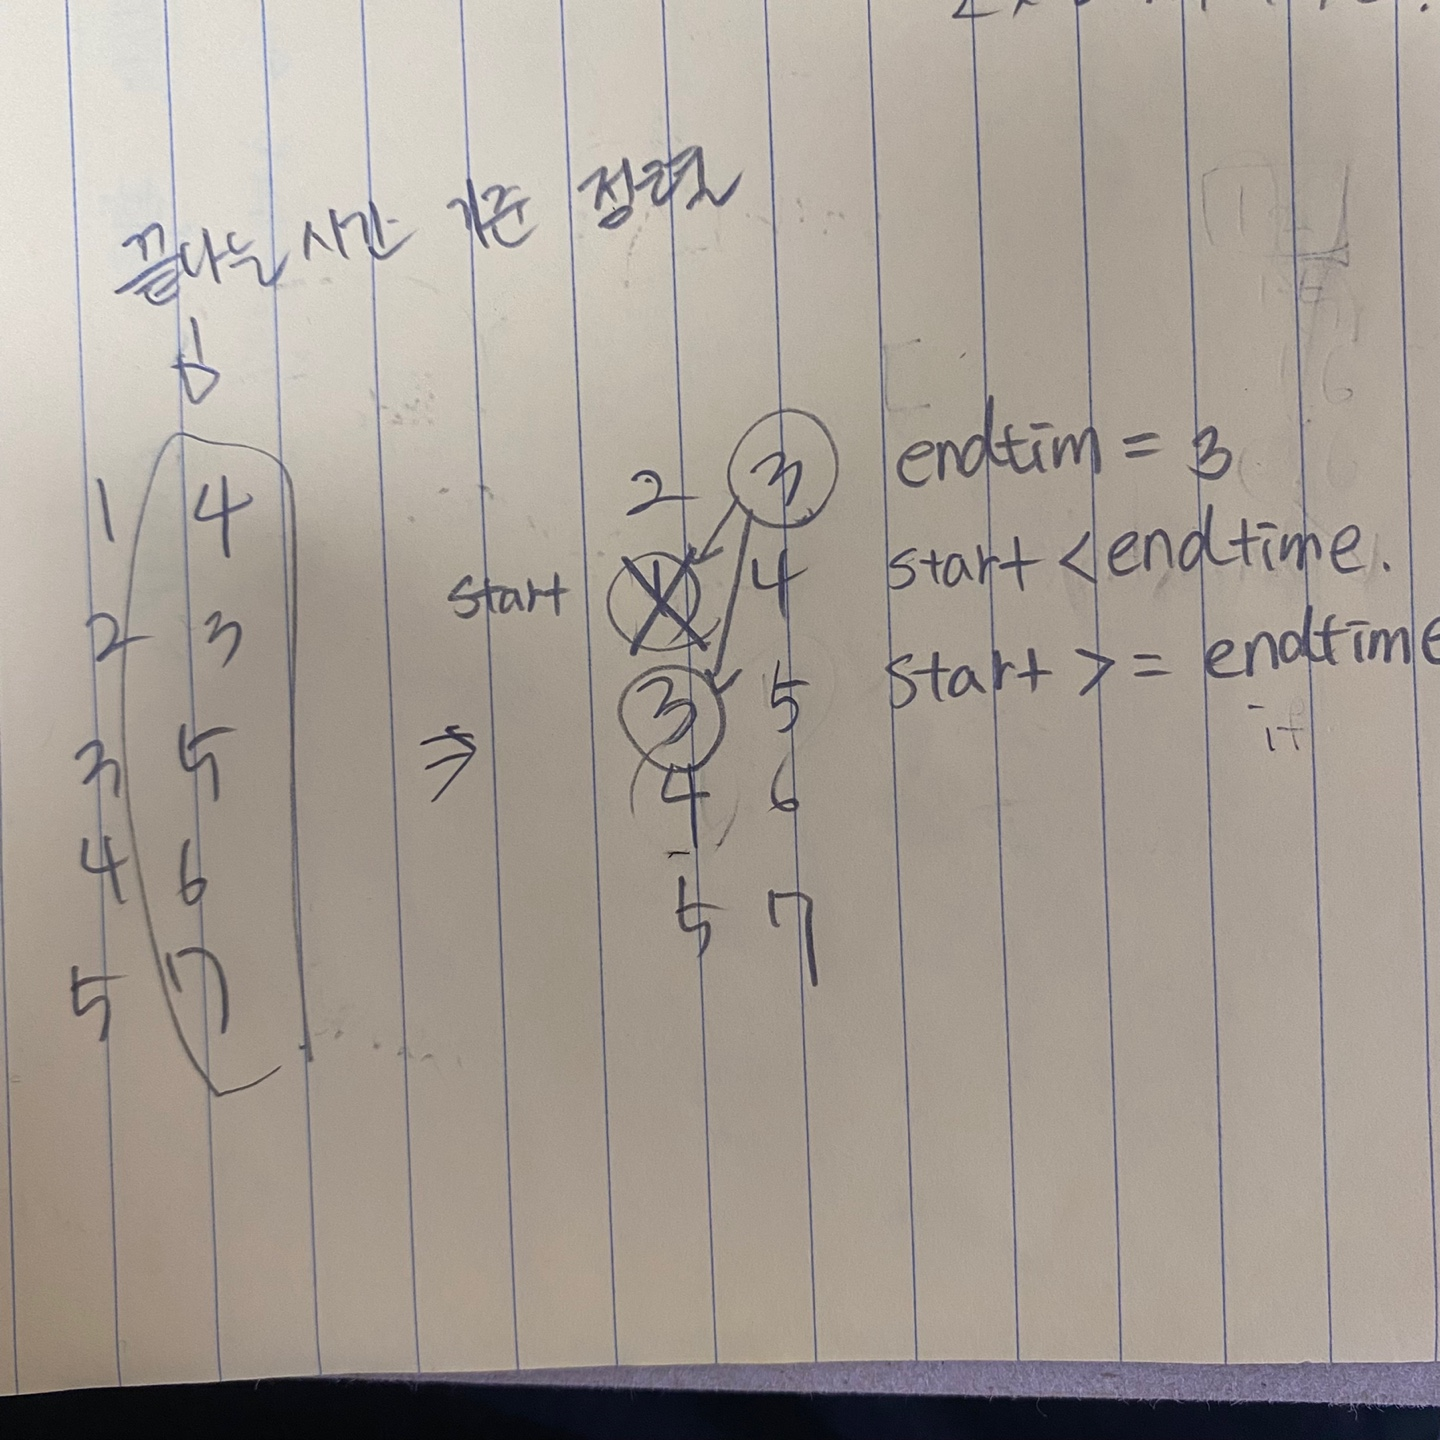 끝나는 시간 기준 정렬
1 4
2 3
3 5
4 6
5 7
⇒
2 3 endtim = 3
start 1 4 start < endtime.
3 5 start >= endtime
4 6
5 7